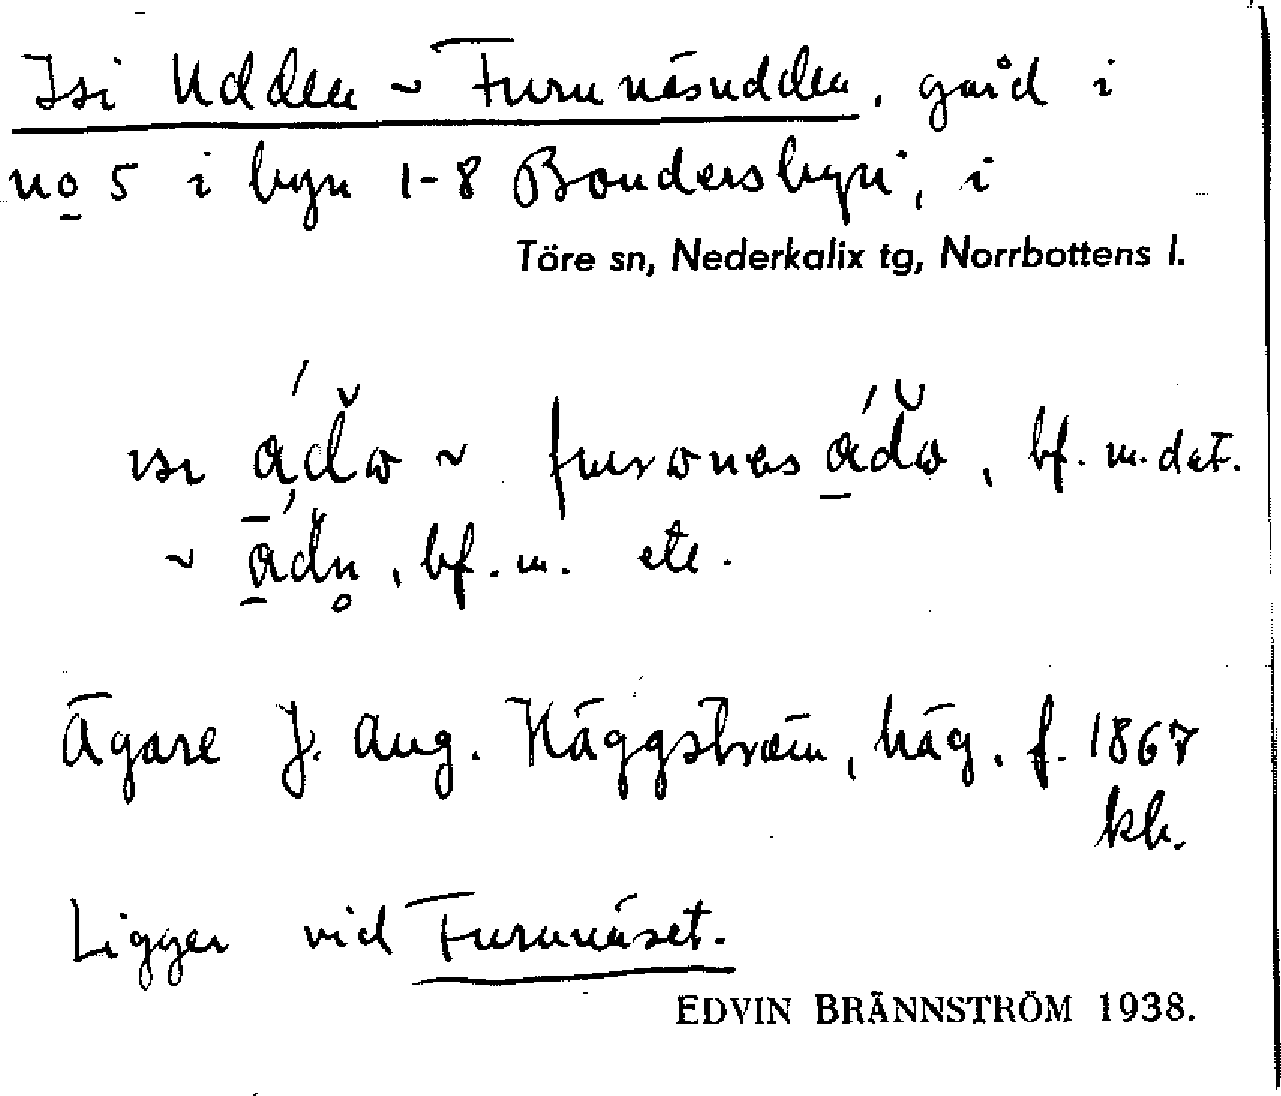 Isi Udden ~ Furunäsudden, gård i
no 5 i byn 1-8 Bondersbyn, i
Töre sn, Nederkalix tg, Norrbottens l.
bf. m. dat.
~ , bf. m. etc.
Ägare J. Aug. Häggström, häg. f. 1867
kh.
Ligger vid Furunäset.
EDVIN BRÄNNSTRÖM 1938.